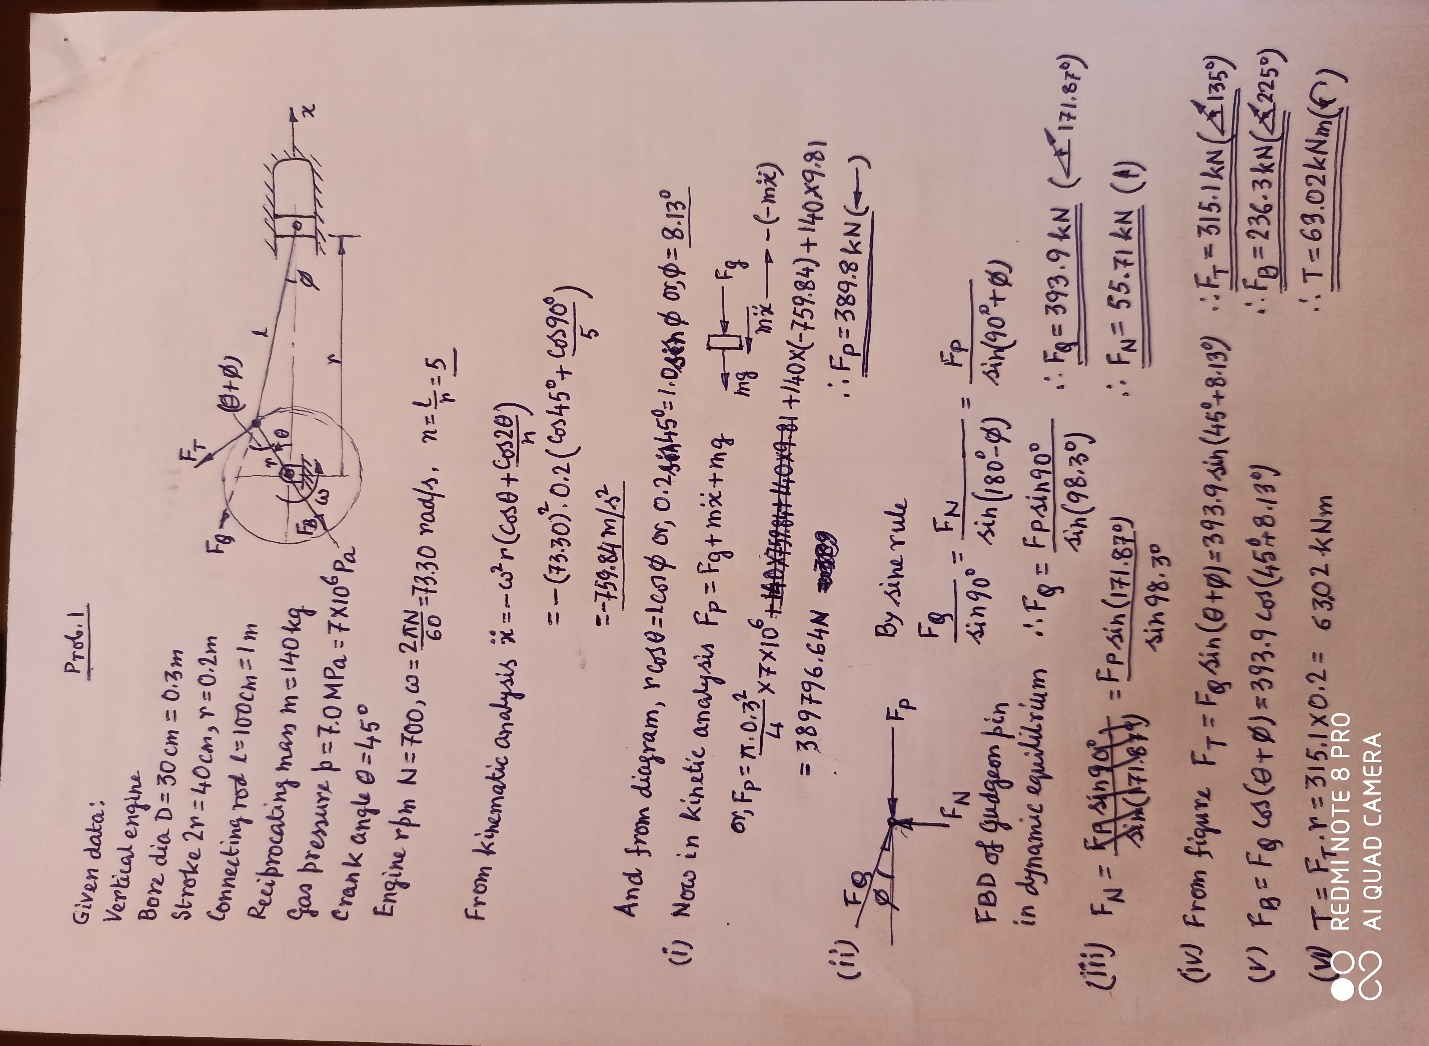 Prob. 1
Given data:
Vertical engine
Bore dia D = 30 cm = 0.3m
Stroke 2r = 40cm, r = 0.2m
Connecting rod l = 100cm = 1m
Reciprocating mass m = 140 kg
Gas pressure p = 7.0 MPa = 7×10⁶ Pa
Crank angle θ = 45°
Engine rpm N = 700, ω = 2πN/60 = 73.30 rad/s, n = l/r = 5
F_Q
F_T
(θ+φ)
l
r
θ
ω
F_B
φ
r
x
From kinematic analysis ẍ = -ω²r(cosθ + cos2θ/n)
= -(73.30)²·0.2(cos45° + cos90°/5)
= -759.84 m/s²
And from diagram, r cosθ = l cosφ or, 0.2 sin45° = 1.0 sinφ or, φ = 8.13°
(i) Now in kinetic analysis F_P = F_g + mẍ + mg
mg
F_g
mẍ
-(-mẍ)
or, F_P = π·0.3²/4 × 7×10⁶ + 140×(-759.84) + 140×9.81
= 389796.64N
∴ F_P = 389.8 kN (←)
(ii)
F_Q
φ
F_P
F_N
FBD of Gudgeon pin
in dynamic equilibrium
By sine rule
F_Q/sin90° = F_N/sin(180°-φ) = F_P/sin(90°+φ)
∴ F_Q = F_P sin90°/sin(98.3°)
∴ F_Q = 393.9 kN (∡171.87°)
(iii) F_N = F_P sin90°/sin(171.87°) = F_P sin(171.87°)/sin98.3°
∴ F_N = 55.71 kN (↑)
(iv) From figure F_T = F_Q sin(θ+φ) = 393.9 sin(45°+8.13°)
∴ F_T = 315.1 kN (∡135°)
(v) F_B = F_Q cos(θ+φ) = 393.9 cos(45°+8.13°)
∴ F_B = 236.3 kN (∡225°)
(vi) T = F_T·r = 315.1×0.2 = 63.02 kNm
∴ T = 63.02 kNm (↰)
REDMI NOTE 8 PRO
AI QUAD CAMERA